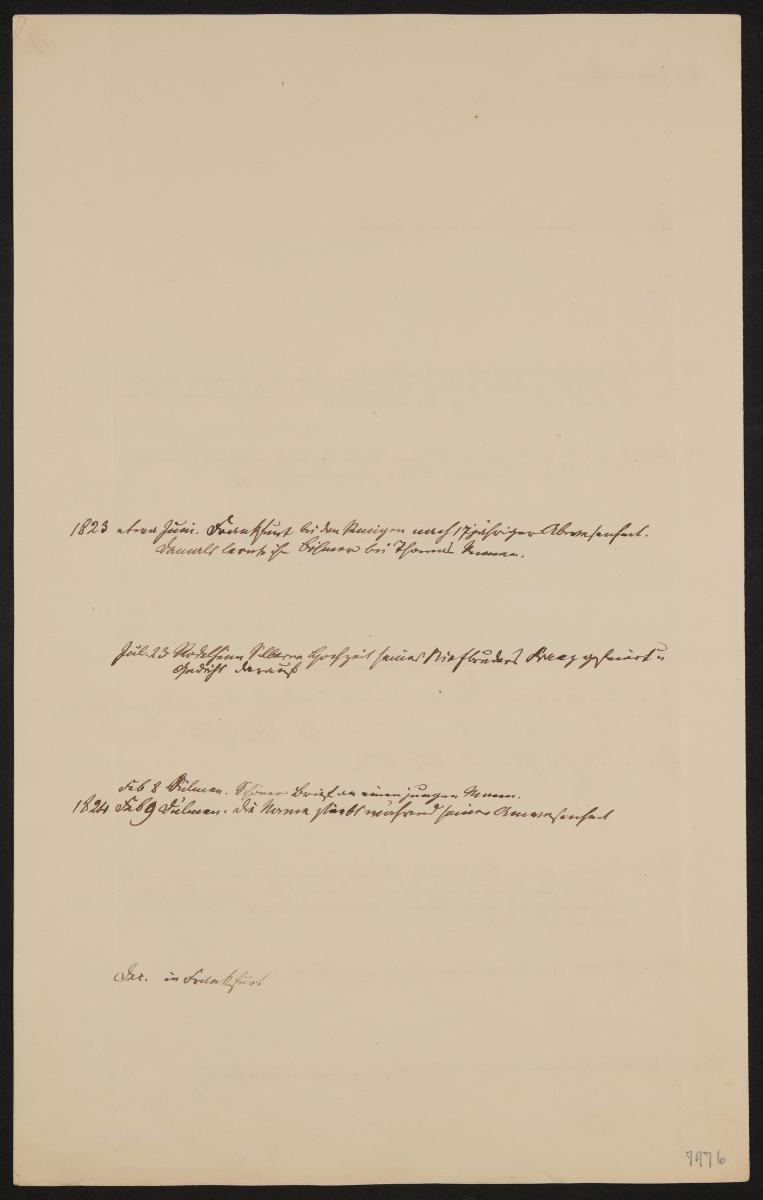 1823 etwa Juni. Frankfurt bei den Seinigen nach 17jähriger Abwesenheit.
Damals lernte ihn Böhmer bei Thomas kennen.
Jul. 23 Rödelheim Silberne Hochzeit seines Stiefbruders Franz gefeiert u
Gedicht darauf
Feb 8 Dülmen. Schöner Brief an einen jungen Mann.
1824 Feb 9 Dülmen. Die Nonne stirbt während seiner Anwesenheit
Dec. in Frankfurt
7976